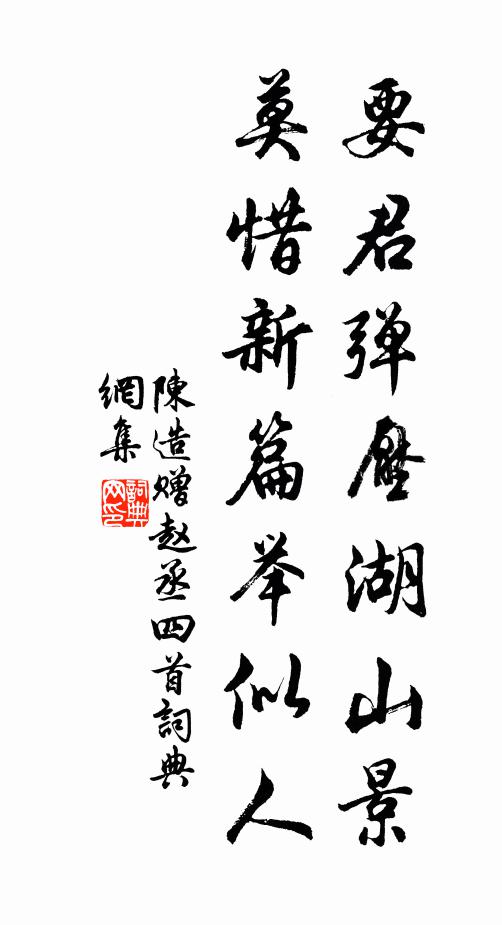 要君弹壓湖山景
莫惜新篇举似人
陳造赠赵丞四首詞典
網集
詞典
网印